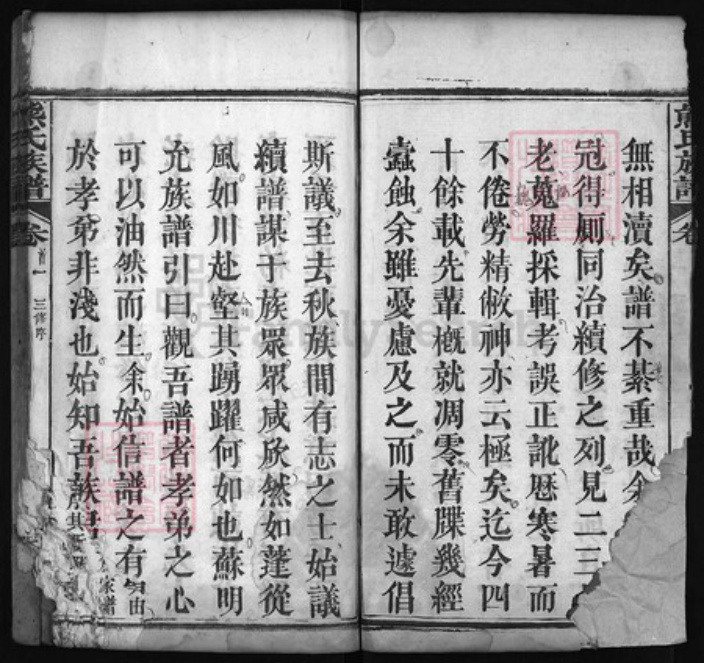 無相瀆矣譜不綦重哉余
冠得厠同治續修之列見二三
老蒐羅採輯考誤正訛歷寒暑而
不倦勞精敝神亦云極矣迄今四
十餘載先輩概就凋零舊牒幾經
蠹蝕余雖憂慮及之而未敢遽倡
斯議至去秋族間有志之士始議
續譜謀于族眾眾咸欣然如蓬從
風如川赴壑其踴躍何如也蘇明
允族譜引曰觀吾譜者孝弟之心
可以油然而生余始信譜之有由
於孝弟非淺也始知吾族
家譜
熊氏族譜
卷首一
三修序
熊氏族譜
卷